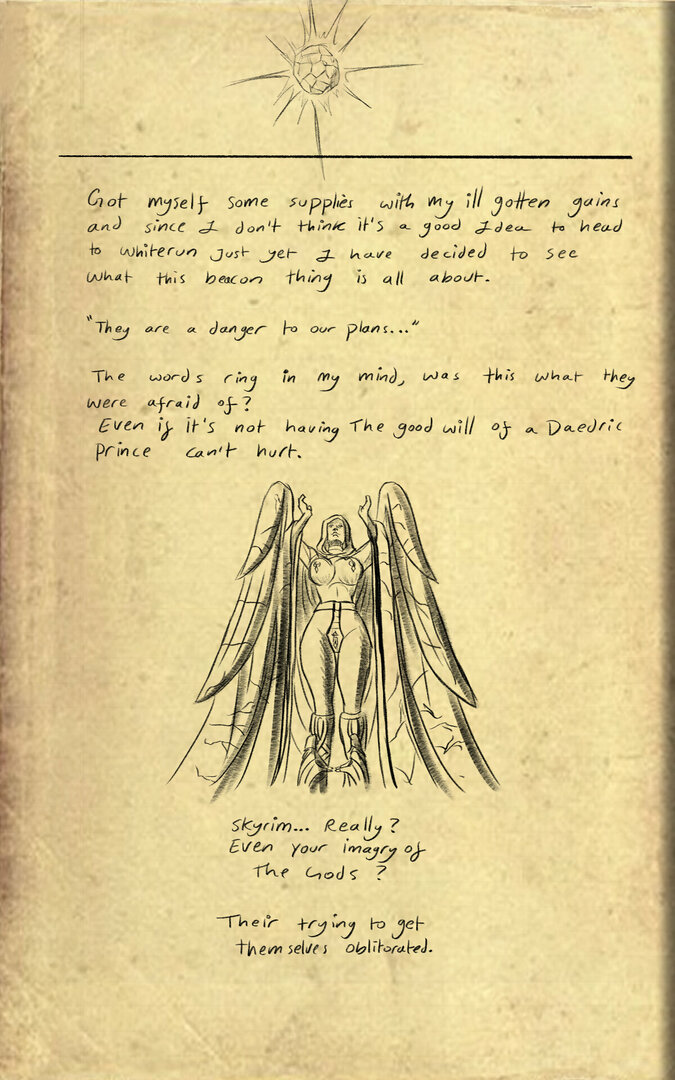 Got myself some supplies with my ill gotten gains
and since I don't think it's a good Idea to head
to whiterun Just yet I have decided to see
what this beacon thing is all about.
"They are a danger to our plans..."
The words ring in my mind, was this what they
were afraid of?
Even if it's not having The good will of a Daedric
Prince can't hurt.
Skyrim... Really?
Even your imagry of
The Gods?
Their trying to get
themselves oblitorated.